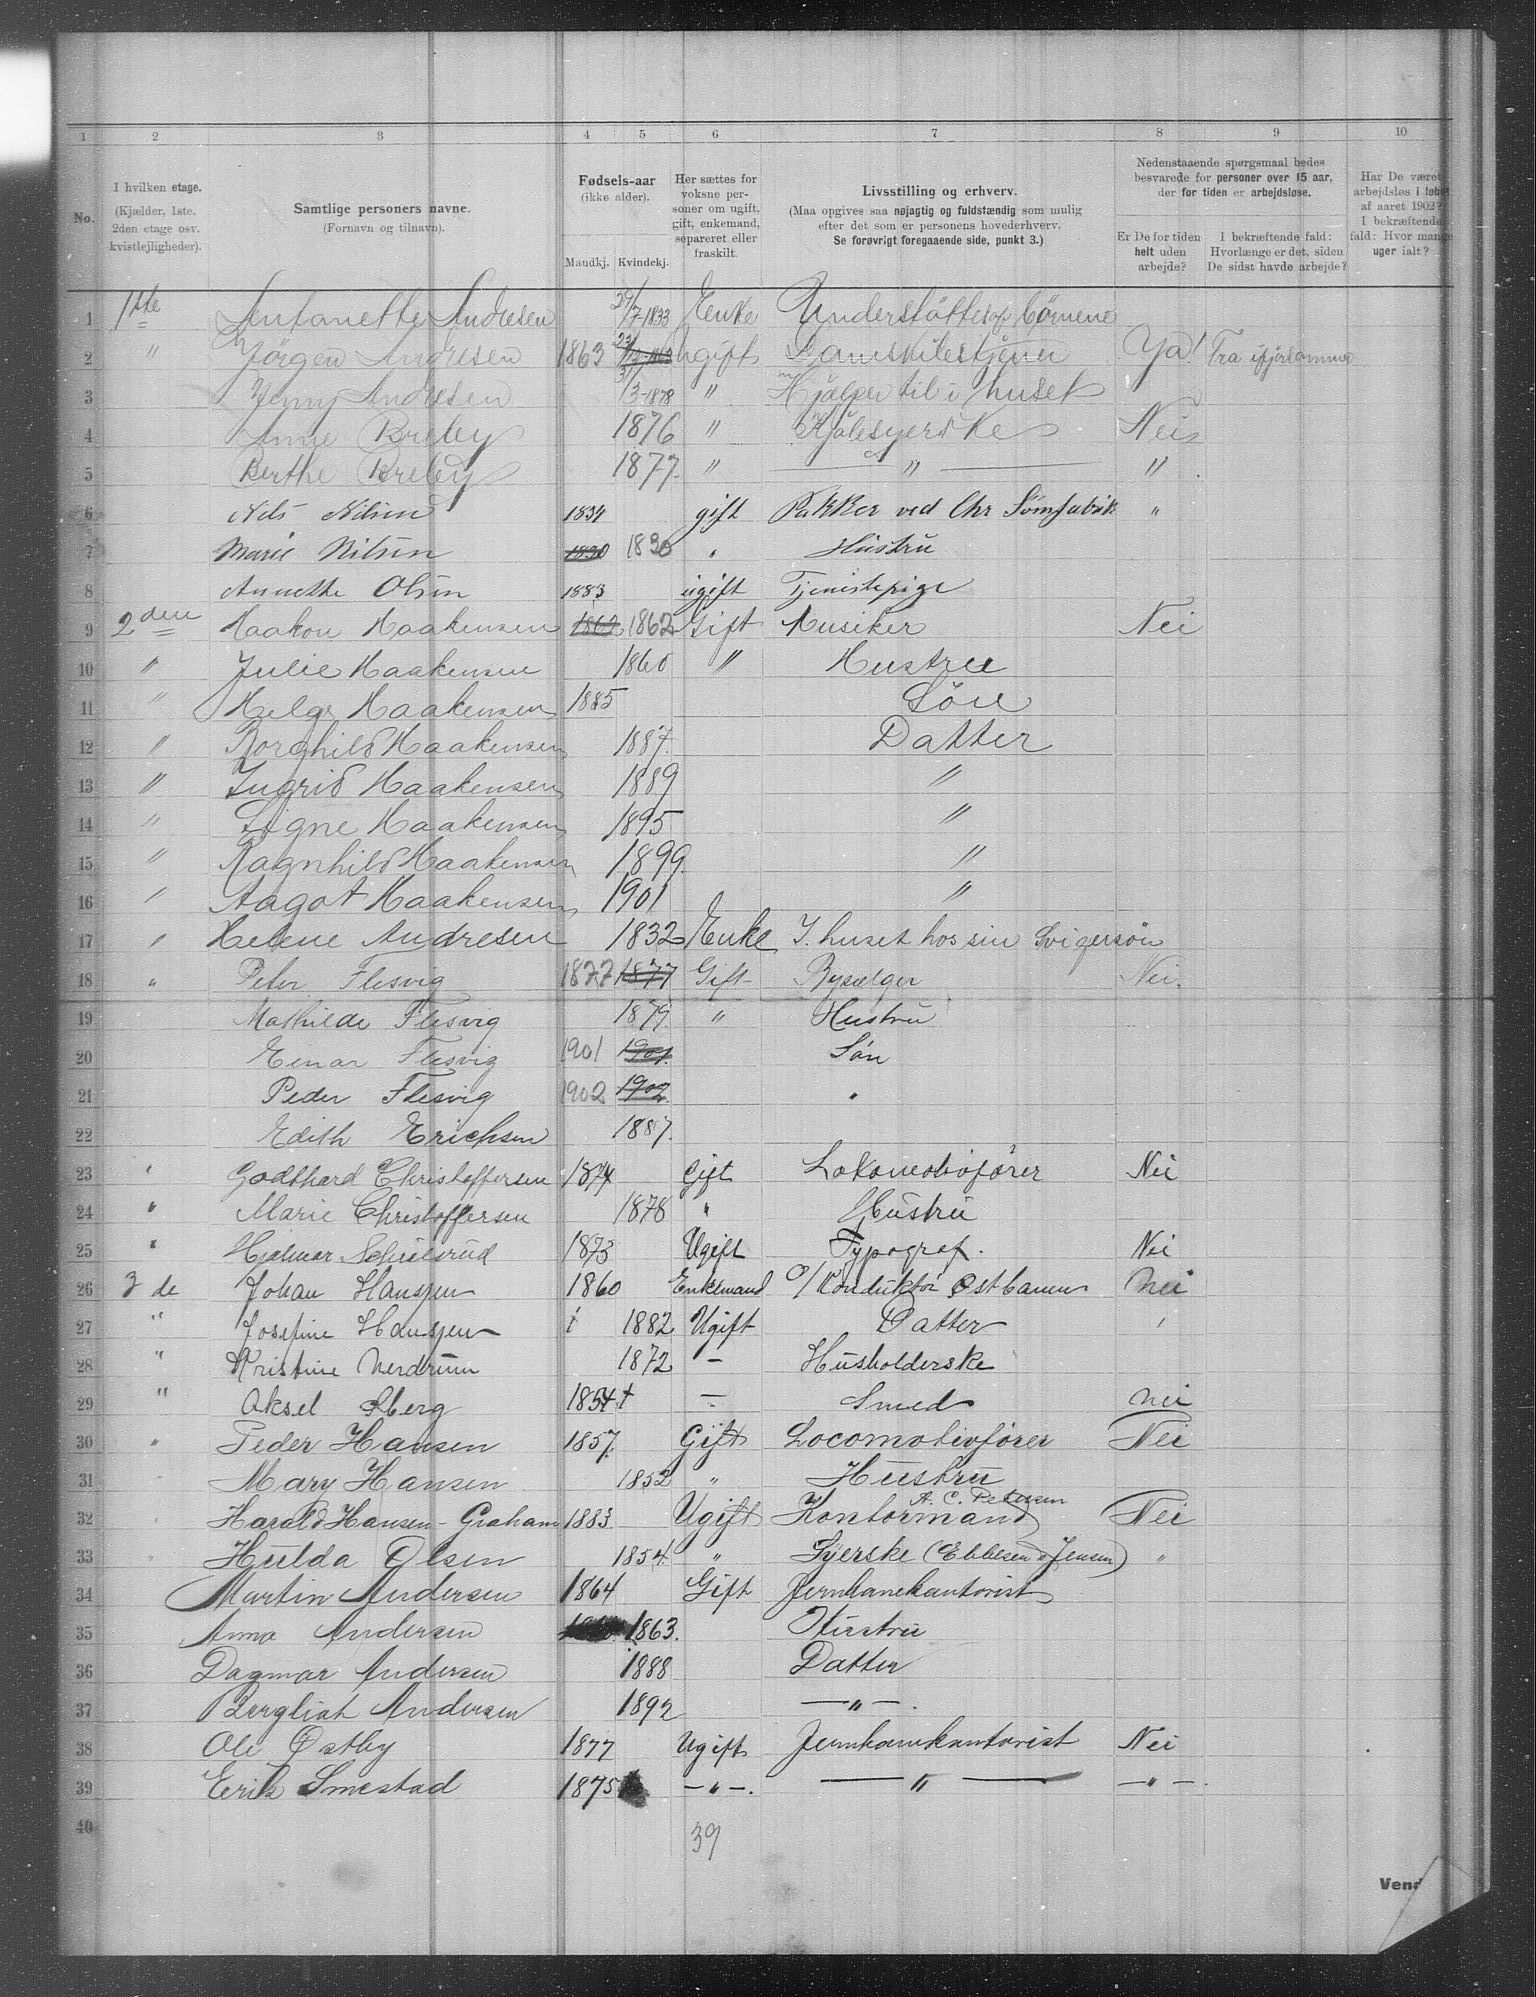 1 2 3 4 5 6 7 8 9 10
No.
I hvilken etage. (Kjælder, 1ste. 2den etage osv. kvistlejligheder).
Samtlige personers navne. (Fornavn og tilnavn).
Fødsels-aar (ikke alder).
Mandkj. Kvindekj.
Her sættes for voksne personer om ugift, gift, enkemand, separeret eller fraskilt.
Livsstilling og erhverv.
(Maa opgives saa nøjagtig og fuldstændig som mulig efter det som er personens hovederhverv.
Se forøvrigt foregaaende side, punkt 3.)
Nedenstaaende spørgsmaal bedes besvarede for personer over 15 aar, der for tiden er arbejdsløse.
Er De for tiden helt uden arbejde?
I bekræftende fald: Hvorlænge er det, siden De sidst havde arbejde?
Har De været arbejdsløs i løbet af aaret 1902? I bekræftende fald: Hvor mange uger ialt?
1 1ste Antonette Andresen 29/7-1833 Enke Understøttes af børnene
2 " Jørgen Andresen 1863 ugift Ya!
3 Jenny Andresen 3-1878 " Hjælper til i huset
4 Anne Breley 1876 " Kjolesyerske Nei
5 Berthe Breley 1877. " " "
6 Nils Nilsen 1834 gift Pakker ved Chr Sømfabrik "
7 Marie Nilsen 1830 1830 " Hustru
8 Annette Olsen 1883 ugift Tjenestepige
9 2den Haakon Haakensen 1862 1862 Gift Musiker Nei
10 " Julie Haakensen 1860 " Hustru
11 " Helge Haakensen 1885 Søn
12 " Borghild Haakensen 1887. Datter
13 " Ingrid Haakensen 1889 "
14 " Signe Haakensen 1895 "
15 " Ragnhild Haakensen 1899. "
16 " Aagot Haakensen 1901 "
17 " Helene Andresen 1832 Enke I. huset hos sin Svigersøn
18 " Peter Flesvig 1877 1877 Gift Bysælger Nei.
19 Mathilde Flesvig 1879. " Hustru
20 Einar Flesvig 1901 1901. Søn
21 Peder Flesvig 1902 1902. "
22 Edith Erichsen 1887.
23 " Godthard Christoffersen 1874 Gift Lokomotivfører Nei
24 " Marie Christoffersen 1878 " Hustru
25 " Hjalmar Schulsrud 1873 Ugift Typograf. Nei
26 3de Johan Hansen 1860 Enkemand O/Konduktør Østbanen Nei
27 " Josefine Hansen 1882 Ugift Datter
28 " Kristine Nerdrum 1872 — Husholderske
29 " Aksel Åberg 1854 — Smed Nei
30 " Peder Hansen 1857. Gift Locomotivfører Nei
31 Mary Hansen 1852 " Hustru
32 Harald Hansen-Graham 1883. Ugift Kontormand A. C. Petersen Nei
33 Hulda Olsen 1854. " Syerske (Ebbesen & Jensen) "
34 Martin Andersen 1864 Gift Jernbanekontorist
35 Anna Andersen 1863. Hustru
36 Dagmar Andersen 1888 Datter
37 Bergliot Andersen 1892 — " — .
38 Ole Østby 1877 Ugift Jernbanekontorist Nei
39 Erik Smestad 1875 — " —. — " — — " — .
40
39
Vend